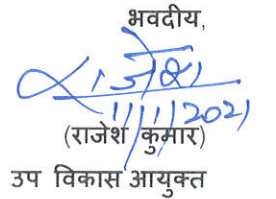 भवदीय,
राजेश
11/1/2021
(राजेश कुमार)
उप विकास आयुक्त